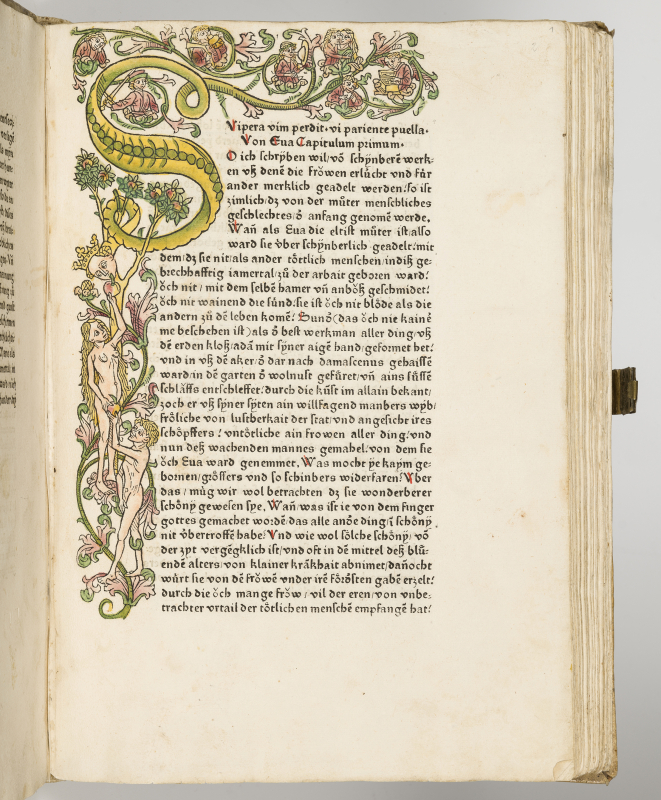 Vipera vim perdit· vi pariente puella·
Von Eua Capitulum primum·
O ich schrÿben wil/ võ schÿnberē werk⸗
en vß denē die fröwen erlücht vnd für
ander merklich geadelt werden/ so ist
zimlich/ dz von der můter menschliches
geschlechtes/ ð anfang genomē werde.
Wañ als Eua die eltist můter ist/ also
ward sie vber schÿnberlich geadelt/ mit
dem/ dz sie nit/ als ander tötlich menschen/ in diß ge⸗
brechhafftig iamertal/ zů der arbait geboren ward/
öch nit/ mit dem selbē hamer vñ anböß geschmidet/
öch nit wainend die sünd/ sie ist öch nit blöde als die
andern zů dē leben komē/ Sunð (das öch nie kainē
me beschehen ist) als ð best werkman aller ding/ vß
dē erden kloß/ adā mit sÿner aigē hand/ geformet het/
vnd in vß dē aker/ ð dar nach damascenus gehaissē
ward/ in dē garten ð wolnust gefüret/ vñ ains süssē
schläffs entschleffet/ durch die küst im allain bekant/
zoch er vß sÿner sÿten ain willsagend manbers wÿb/
fröliche von lustberkait der stat/ vnd angesicht ires
schöpffers/ vntötliche ain frowen aller ding/ vnd
nun deß wachenden mannes gemahel/ von dem sie
öch Eua ward genemmet/ Was mocht ÿe kaÿm ge⸗
bornen/ grössers vnd so schinbers widerfaren/ Vber
das/ müg wir wol betrachten dz sie wonderberer
schönÿ gewesen sye. Wañ/ was ist ie von dem finger
gottes gemachet wordē/ das alle anðe ding/ ī schönÿ
nit vbertroffē habe/ Vnd wie wol sölche schönÿ/ võ
der zyt vergēgklich ist/ vnd oft in dē mittel deß blü⸗
endē alters/ von klainer krākhait abnimet/ dañocht
würt sie von dē fröwē vnder irē förösten gabē erzelt/
durch die öch mange fröw/ vil der eren/ von vnbe⸗
trachter vrtail der tötlichen menschē empfangē hat/